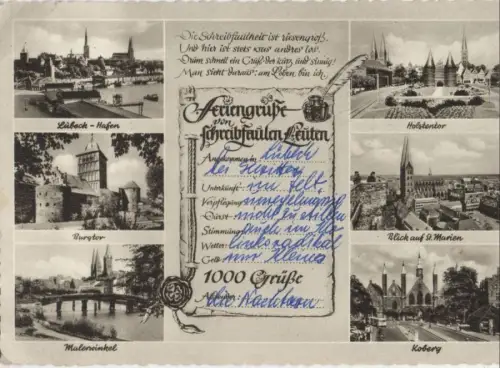 Die Schreibfaulheit ist riesengroß,
Und hier ist stets was andres los.
Drum schnell ein Gruß der kurz und sinnig!
Man sieht daraus: am Leben bin ich.
Feriengrüße
von
schreibfaulen Leuten
Angekommen in Lübeck
bei
Unterkunft: im Zelt
Verpflegung: unregelmäßig
Durst: nicht zu stillen
Stimmung: auch im
Wetter:
Geld: nur kleines
1000 Grüße
die Nachbarn
Lübeck - Hafen
Burgtor
Malerwinkel
Holstentor
Blick auf St. Marien
Koberg